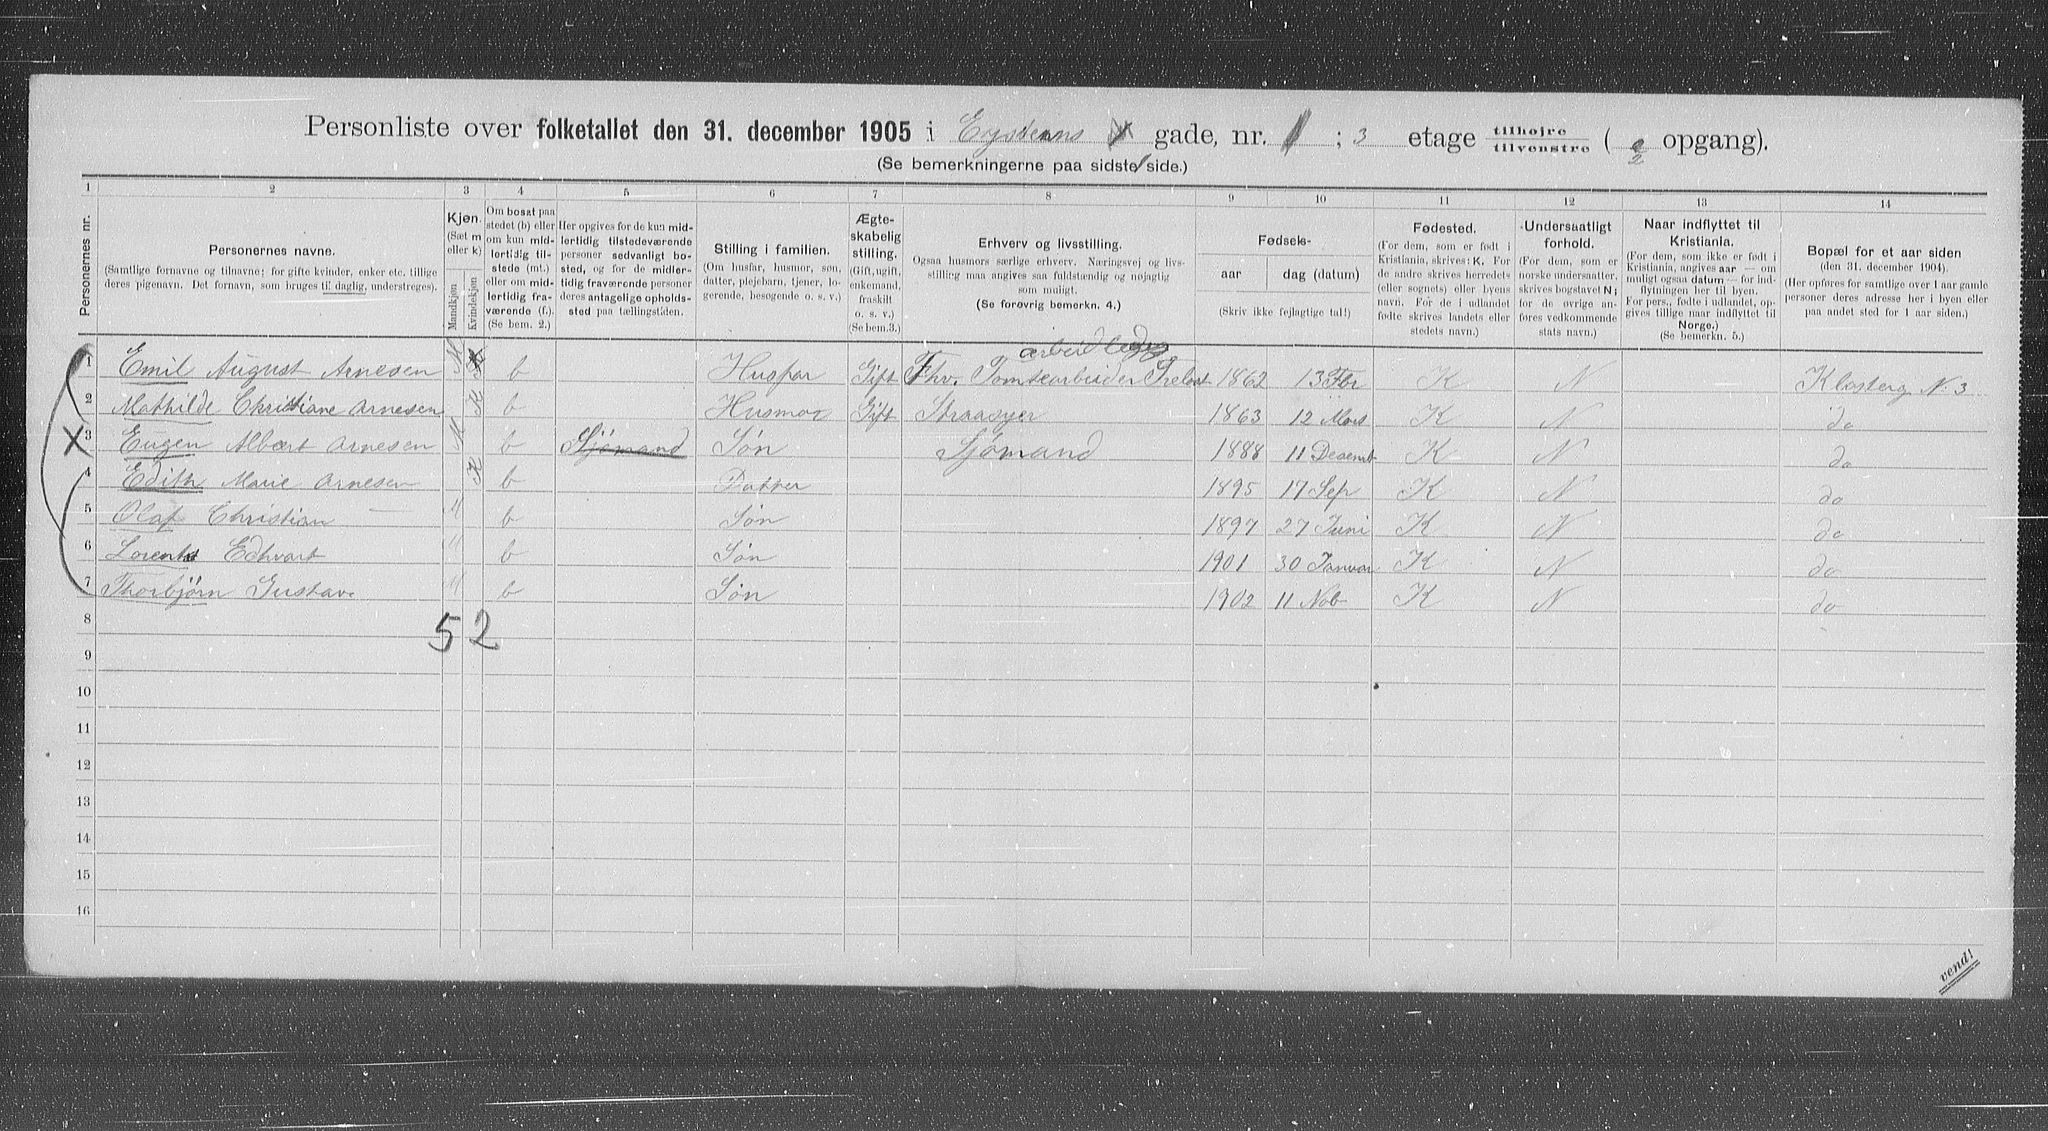 Personliste over folketallet den 31. december 1905 i Eysteins gade, nr. 1 ; 3 etage tilhøjre tilvenstre ( 2 opgang).
(Se bemerkningerne paa sidste side.)
1 2 3 4 5 6 7 8 9 10 11 12 13 14
Personernes nr.
Personernes navne.
(Samtlige fornavne og tilnavne; for gifte kvinder, enker etc. tillige
deres pigenavn. Det fornavn, som bruges til daglig, understreges).
Kjøn.
(Sæt m
eller k)
Mandkjøn
Kvindekjøn
Om bosat paa
stedet (b) eller
om kun mid-
lertidig til-
stede (mt.)
eller om mid-
lertidig fra-
værende (f.).
(Se bem. 2.)
Her opgives for de kun mid-
lertidig tilstedeværende
personer sedvanligt bo-
sted, og for de midler-
tidig fraværende personer
deres antagelige opholds-
sted paa tællingstiden.
Stilling i familien.
(Om husfar, husmor, søn,
datter, plejebarn, tjener, lo-
gerende, besøgende o. s. v.)
Ægte-
skabelig
stilling.
(Gift, ugift,
enkemand,
fraskilt
o. s. v.)
(Se bem. 3.)
Erhverv og livsstilling.
Ogsaa husmors særlige erhverv. Næringsvej og livs-
stilling maa angives saa fuldstændig og nøjagtig
som muligt.
(Se forøvrig bemerkn. 4.)
Fødsels-
aar
dag (datum)
(Skriv ikke fejlagtige tal!)
Fødested.
(For dem, som er født i
Kristiania, skrives: K. For
de andre skrives herredets
(eller sognets) eller byens
navn. For de i udlandet
fødte skrives landets eller
stedets navn.)
Undersaatligt
forhold.
(For dem, som er
norske undersaatter,
skrives bogstavet N;
for de øvrige an-
føres vedkommende
stats navn.)
Naar indflyttet til
Kristiania.
(For dem, som ikke er født i
Kristiania, angives aar — om
muligt ogsaa datum — for ind-
flytningen her til byen.
For pers., fødte i udlandet, op-
gives tillige naar indflyttet til
Norge.)
(Se bemerkn. 5.)
Bopæl for et aar siden
(den 31. december 1904).
(Her opføres for samtlige over 1 aar gamle
personer deres adresse her i byen eller
paa andet sted for 1 aar siden.)
arbeidledig
1 Emil August Arnesen M b Husfar Gift Fhv. Tomtearbeider 1862 13 Fbr K N Klosterg N. 3
2 Mathilde Christiane Arnesen K b Husmor Gift Straasyer 1863 12 Mars K N do
X 3 Eugen Albert Arnesen M b Sjømand Søn Sjømand 1888 11 Desemt K N do
4 Edith Marie Arnesen K b Datter 1895 17 Sep K N do
5 Olaf Christian — M b Søn 1897 27 Juni K N do
6 Lorents Edhvart M b Søn 1901 30 Januar K N do
7 Thorbjørn Gustav M b Søn 1902 11 Nob K N do
8 5 2
9
10
11
12
13
14
15
16
vend!